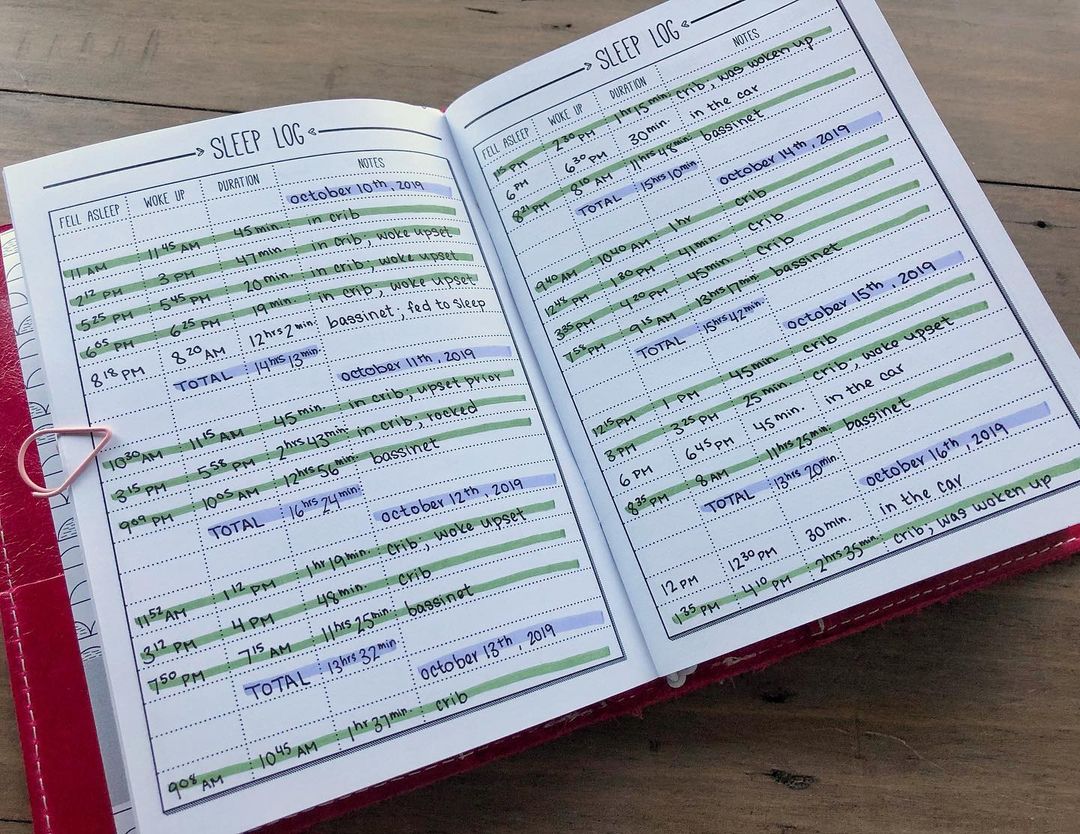 SLEEP LOG
FELL ASLEEP WOKE UP DURATION NOTES
october 10th, 2019
11 AM 11 45 AM 45 min. in crib
2 12 PM 3 PM 47 min. in crib; woke upset
5 25 PM 5 45 PM 20 min. in crib; woke upset
6 05 PM 6 25 PM 19 min. in crib, woke upset
8 18 PM 8 20 AM 12 hrs 2 min. bassinet; fed to sleep
TOTAL 14 hrs 13 min.
october 11th, 2019
10 30 AM 11 15 AM 45 min. in crib; upset prior
3 15 PM 5 58 PM 2 hrs 43 min. in crib; rocked
9 09 PM 10 05 AM 12 hrs 56 min. bassinet
TOTAL 16 hrs 24 min.
october 12th, 2019
11 52 AM 1 12 PM 1 hr 19 min. crib; woke upset
3 12 PM 4 PM 48 min. crib
7 50 PM 7 15 AM 11 hrs 25 min. bassinet
TOTAL 13 hrs 32 min.
october 13th, 2019
9 08 AM 10 45 AM 1 hr 37 min. crib
SLEEP LOG
FELL ASLEEP WOKE UP DURATION NOTES
1 15 PM 2 30 PM 1 hr 15 min. crib, was woken up
6 PM 6 30 PM 30 min. in the car
8 21 PM 8 10 AM 11 hrs 48 min. bassinet
TOTAL 15 hrs 10 min.
october 14th, 2019
9 40 AM 10 40 AM 1 hr crib
12 48 PM 1 30 PM 41 min. crib
3 35 PM 4 20 PM 45 min. crib
7 58 PM 9 15 AM 13 hrs 17 min. bassinet
TOTAL 15 hrs 42 min.
october 15th, 2019
12 15 PM 1 PM 45 min. crib
3 PM 3 25 PM 25 min. crib, woke upset
6 PM 6 45 PM 45 min. in the car
8 35 PM 8 AM 11 hrs 25 min. bassinet
TOTAL 13 hrs 20 min.
october 16th, 2019
12 PM 12 30 PM 30 min. in the car
1 35 PM 4 10 PM 2 hrs 35 min. crib; was woken up